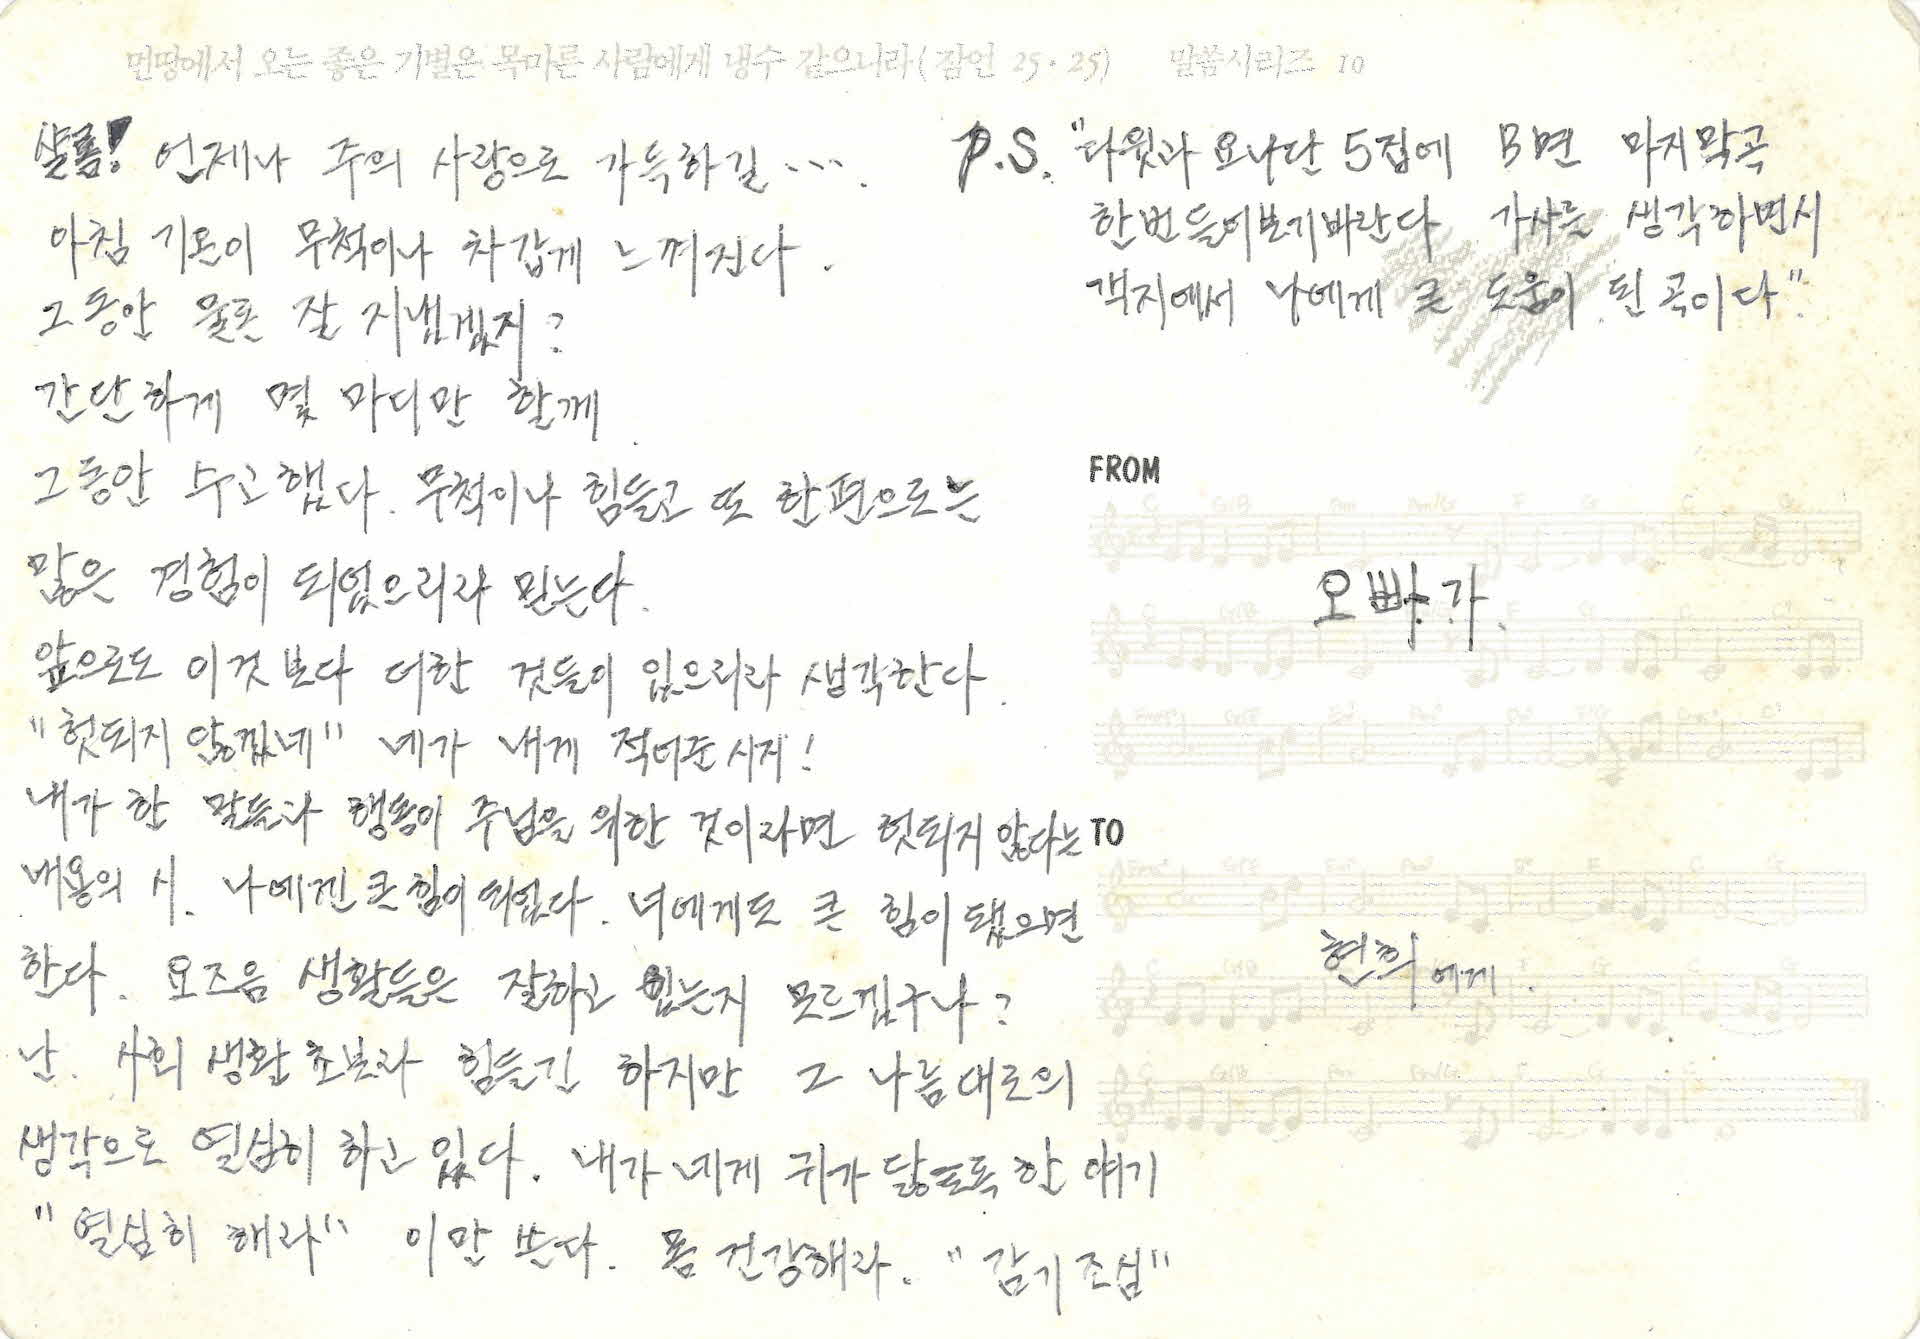 먼땅에서 오는 좋은 기별은 목마른 사람에게 냉수 같으니라 (잠언 25·25) 말씀시리즈 10
샬롬! 언제나 주의 사랑으로 가득하길 ….
아침 기온이 무척이나 차갑게 느껴진다.
그동안 물론 잘 지냈겠지?
간단하게 몇 마디만 할께.
그동안 수고했다. 무척이나 힘들고 또 한편으로는
많은 경험이 되었으리라 믿는다.
앞으로도 이것보다 더한 것들이 있으리라 생각한다.
"헛되지 않겠네" 네가 내게 적어준 시지!
내가 한 말들과 행동이 주님을 위한 것이라면 헛되지 않다는
내용의 시. 나에겐 큰 힘이 되었다. 너에게도 큰 힘이 됐으면
한다. 요즈음 생활들은 잘하고 있는지 모르겠구나?
난. 사회 생활 초보라 힘들긴 하지만 그 나름대로의
생각으로 열심히 하고 있다. 내가 네게 귀가 닳도록 한 얘기
"열심히 해라" 이만 쓴다. 몸 건강해라. "감기 조심"
P.S. "다윗과 요나단 5집에 B면 마지막곡
한번 들어보기 바란다 가사를 생각하면서
객지에서 나에게 큰 도움이 된 곡이다".
FROM
오빠가.
TO
현희에게.